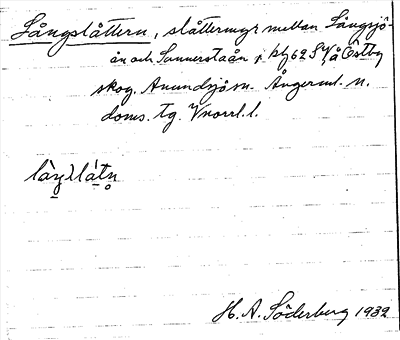 Långslåttern, slåttermyr mellan Långsjö-
ån och Sunnerstaån på bl 62 SV å Östby
skog. Anundsjö sn. Ångerml. n.
doms. tg. Vnorrl. l.
H. A. Söderberg 1932